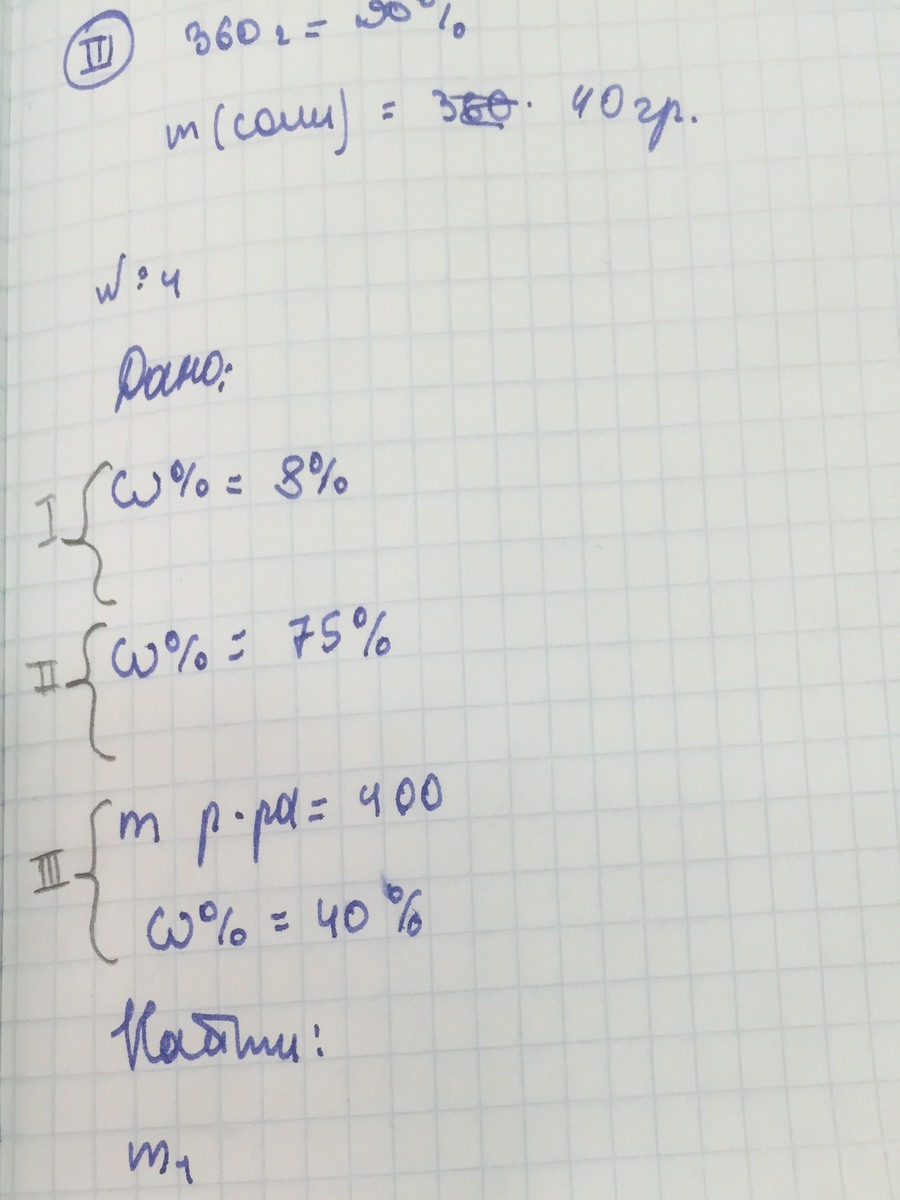 III 360 г = 90%
m (соли) = 360 · 40 гр.
№: 4
Дано:
I ω% = 8%
II ω% = 75%
III m р-ра = 400
ω% = 40%
Найти:
m₁